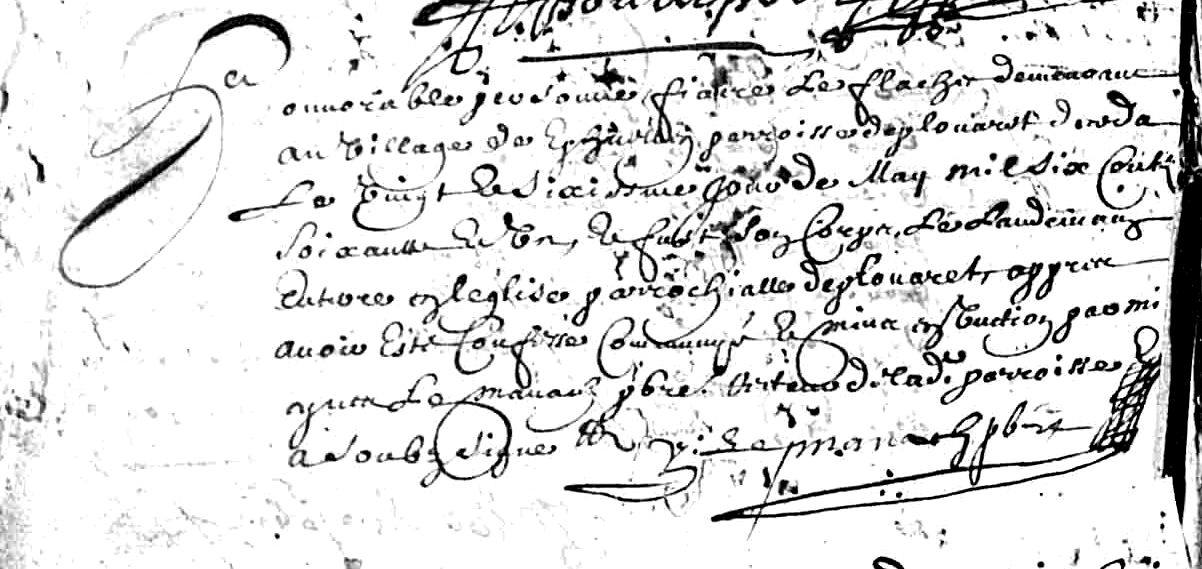 onnorable personne fiacre Le flacher demeurant
au village de parroisse de plouaret deceda
Le vingt et sixiesme jour de May mil six cents
soixante et un, et fust son corps Le Landemain
enterre en leglise parrochialle de plouaret, appres
avoir este confesse communyé et mins en par mi
Le manach pbre de lad. parroisse
a soubz signe
y: Le manach pbre